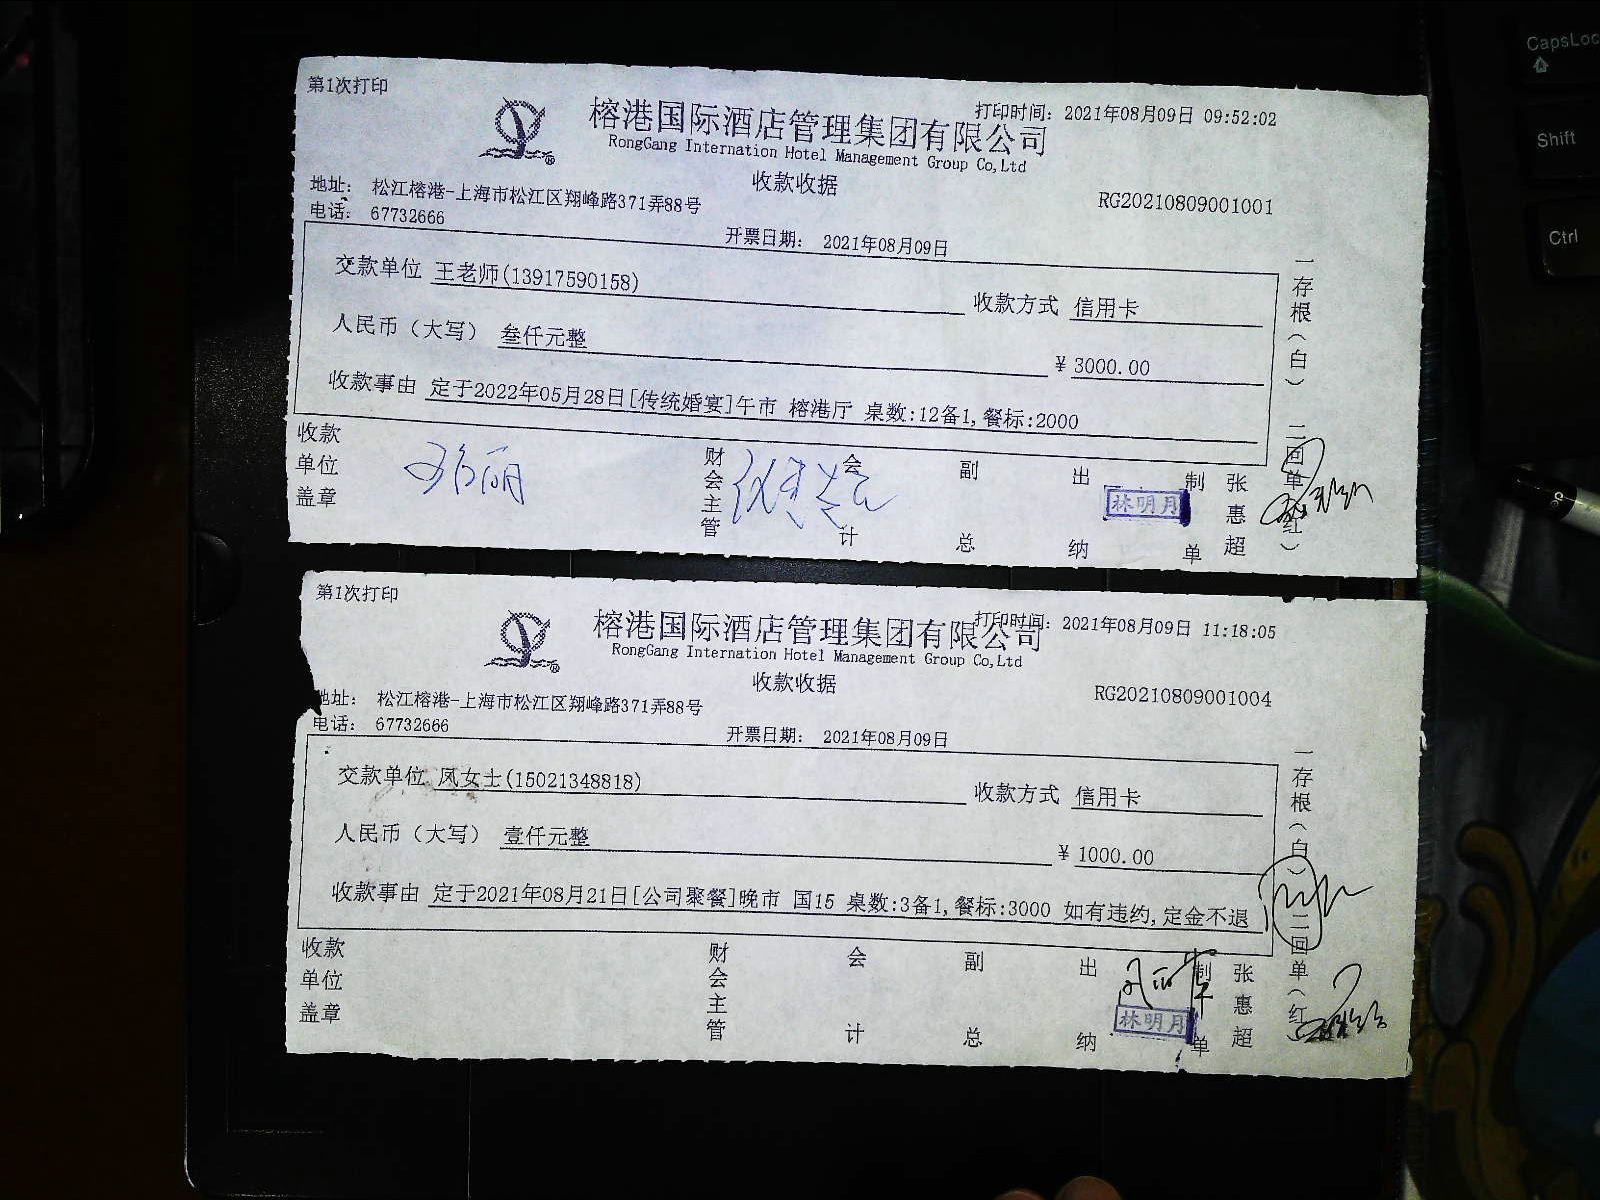 第1次打印
打印时间： 2021年08月09日 09:52:02
榕港国际酒店管理集团有限公司
RongGang Internation Hotel Management Group Co,Ltd
收款收据
地址： 松江榕港-上海市松江区翔峰路371弄88号
RG20210809001001
电话： 67732666
开票日期： 2021年08月09日
交款单位 王老师(13917590158)
收款方式 信用卡
人民币（大写） 叁仟元整
¥ 3000.00
收款事由 定于2022年05月28日[传统婚宴]午市 榕港厅 桌数:12备1,餐标:2000
一存根（白） 二回单（红）
收款单位盖章
财会主管
会计
副总
出纳
林明月
制单
张惠超
第1次打印
打印时间： 2021年08月09日 11:18:05
榕港国际酒店管理集团有限公司
RongGang Internation Hotel Management Group Co,Ltd
收款收据
地址： 松江榕港-上海市松江区翔峰路371弄88号
RG20210809001004
电话： 67732666
开票日期： 2021年08月09日
交款单位 凤女士(15021348818)
收款方式 信用卡
人民币（大写） 壹仟元整
¥ 1000.00
收款事由 定于2021年08月21日[公司聚餐]晚市 国15 桌数:3备1,餐标:3000 如有违约,定金不退
一存根（白） 二回单（红）
收款单位盖章
财会主管
会计
副总
出纳
林明月
制单
张惠超
CapsLoc
Shift
Ctrl